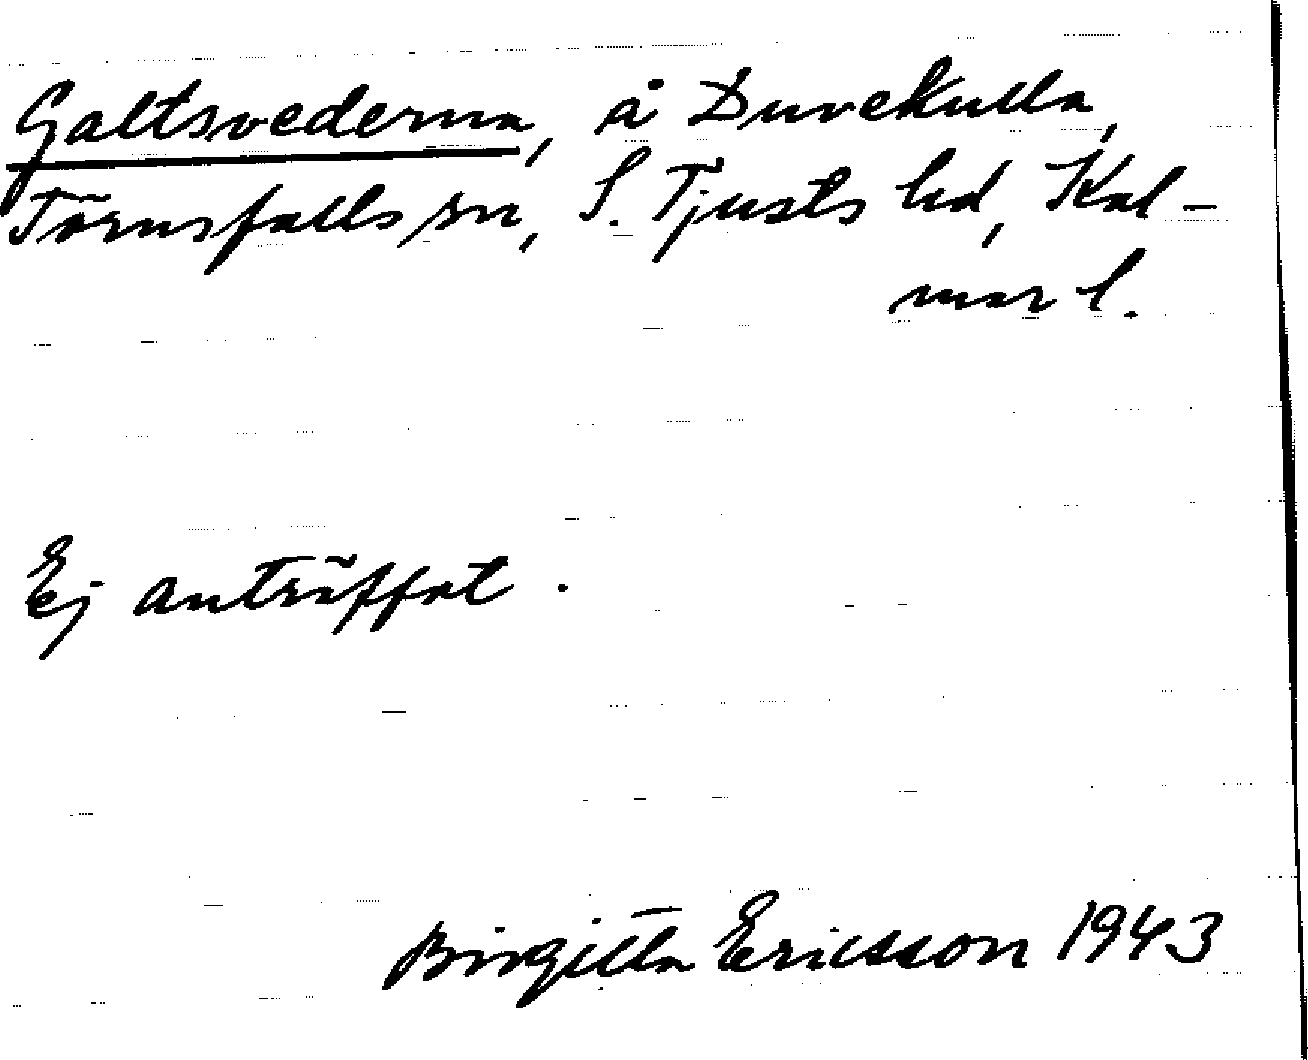 Galtsvederna, å Duvekulla,
Törnsfalls sn, S. Tjusts hd, Kal-
mar l.
Ej anträffat.
Birgitta Ericsson 1943